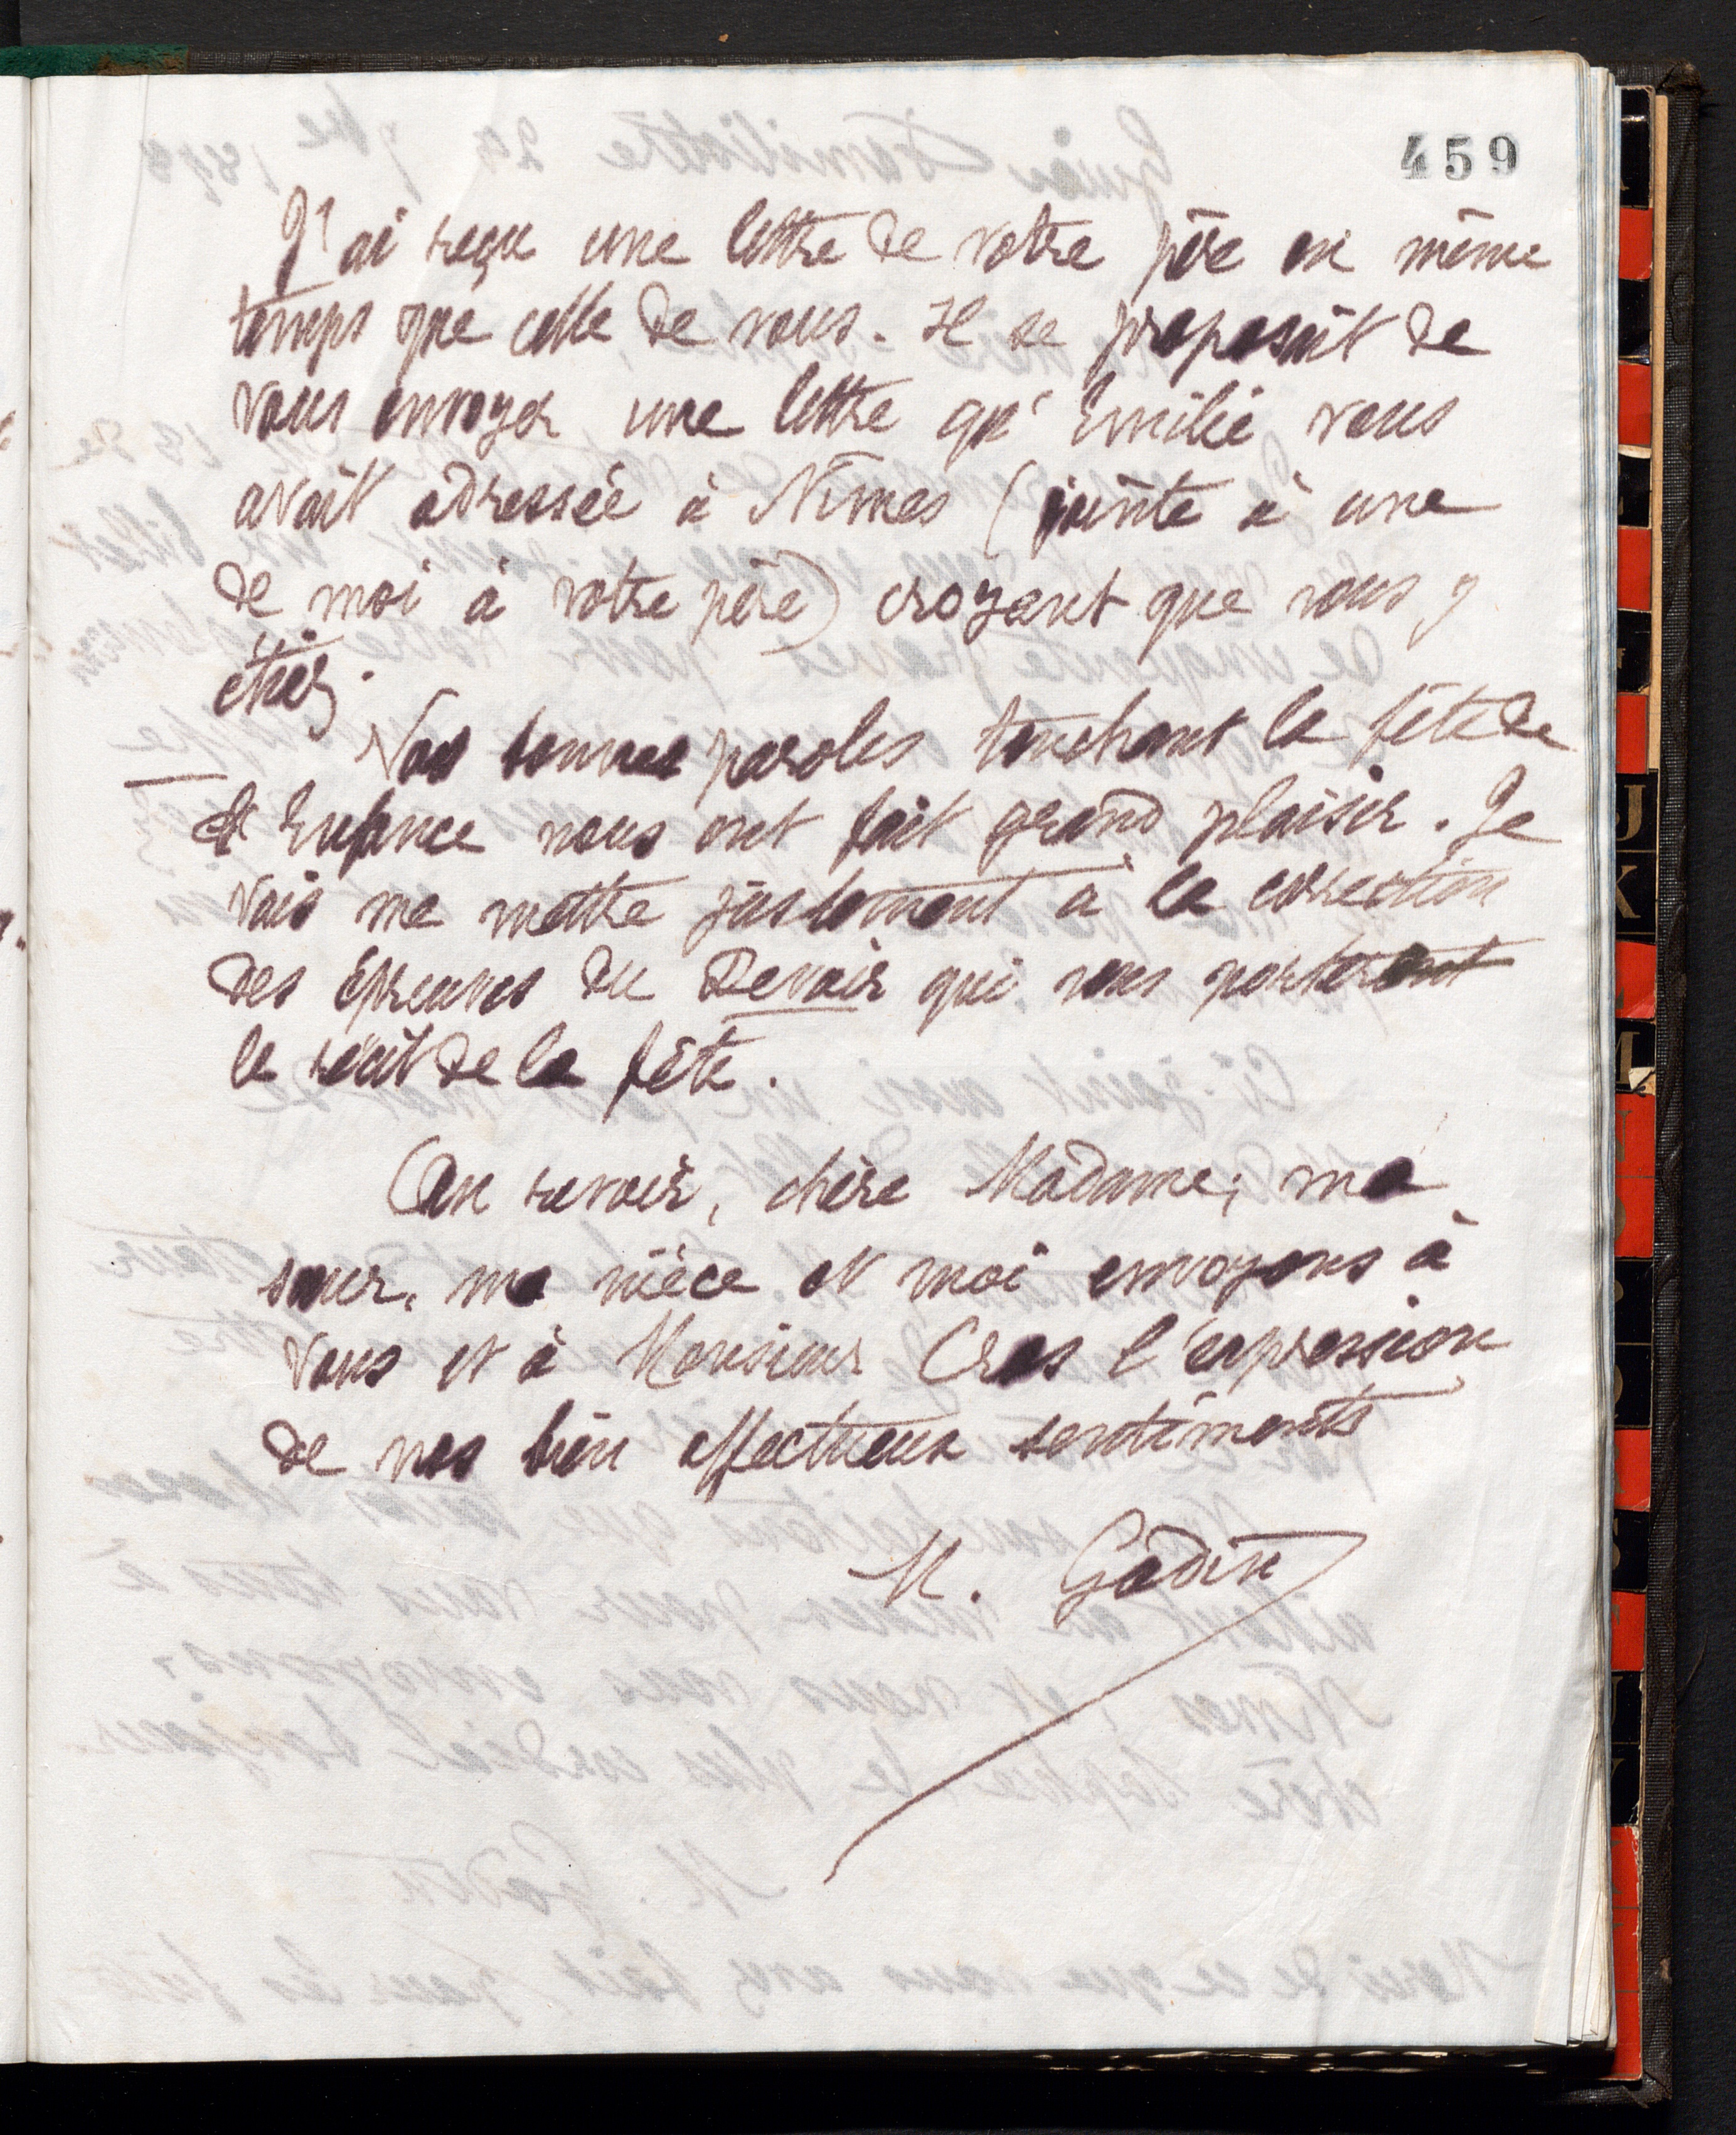 459
J'ai reçu une lettre de votre père en même
temps que celle de vous. Il se proposait de
vous envoyer une lettre qu'Emilie vous
avait adressée à Nîmes (jointe à une
de moi à votre père) croyant que vous y
étiez.
Vos bonnes paroles touchant la fête de
l'Enfance nous ont fait grand plaisir. Je
vais me mettre justement à la correction
des épreuves du Devoir qui vous porteront
le récit de la fête.
Au revoir, chère Madame; ma
sœur, ma nièce et moi envoyons à
vous et à Monsieur Cros l'expression
de nos bien affectueux sentiments
M. Godin